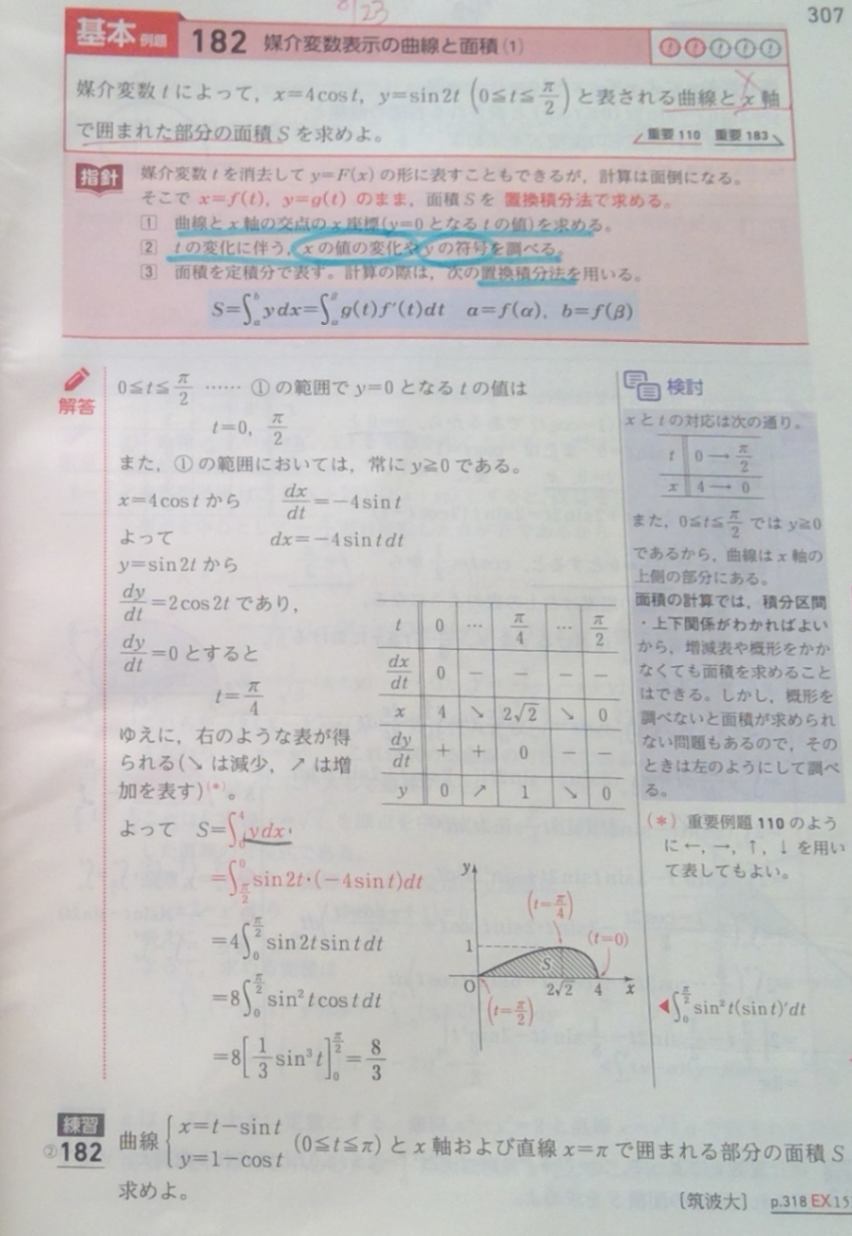 8/23
307
基本 例題 182 媒介変数表示の曲線と面積(1)
媒介変数 t によって，x=4cos t，y=sin2t (0≦t≦π/2) と表される曲線と x 軸
で囲まれた部分の面積 S を求めよ。
重要 110 重要 183
指針
媒介変数 t を消去して y=F(x) の形に表すこともできるが，計算は面倒になる。
そこで x=f(t)，y=g(t) のまま，面積 S を 置換積分法で求める。
1 曲線と x 軸の交点の x 座標(y=0 となる t の値)を求める。
2 t の変化に伴う，x の値の変化や y の符号を調べる。
3 面積を定積分で表す。計算の際は，次の置換積分法を用いる。
S=∫_a^b ydx=∫_α^β g(t)f'(t)dt a=f(α)，b=f(β)
解答
0≦t≦π/2 …… ① の範囲で y=0 となる t の値は
t=0，π/2
また，① の範囲においては，常に y≧0 である。
x=4cos t から dx/dt=-4sin t
よって dx=-4sin tdt
y=sin2t から
dy/dt=2cos2t であり，
dy/dt=0 とすると
t=π/4
ゆえに，右のような表が得
られる(↘ は減少，↗ は増
加を表す)(*)。
t 0 … π/4 … π/2
dx/dt 0 - - - -
x 4 ↘ 2√2 ↘ 0
dy/dt + + 0 - -
y 0 ↗ 1 ↘ 0
よって S=∫_0^4 ydx
=∫_{π/2}^0 sin2t・(-4sin t)dt
=4∫_0^{π/2} sin2tsin tdt
=8∫_0^{π/2} sin²tcos tdt
=8[1/3 sin³t]_0^{π/2}=8/3
y
(t=π/4)
1
(t=0)
S
O 2√2 4 x
(t=π/2)
検討
x と t の対応は次の通り。
t 0 → π/2
x 4 → 0
また，0≦t≦π/2 では y≧0
であるから，曲線は x 軸の
上側の部分にある。
面積の計算では，積分区間
・上下関係がわかればよい
から，増減表や概形をかか
なくても面積を求めること
はできる。しかし，概形を
調べないと面積が求められ
ない問題もあるので，その
ときは左のようにして調べ
る。
(*) 重要例題 110 のよう
に ←，→，↑，↓ を用い
て表してもよい。
◀∫_0^{π/2} sin²t(sin t)'dt
練習
②182 曲線 {x=t-sin t
y=1-cos t (0≦t≦π) と x 軸および直線 x=π で囲まれる部分の面積 S
求めよ。
〔筑波大〕 p.318 EX 15